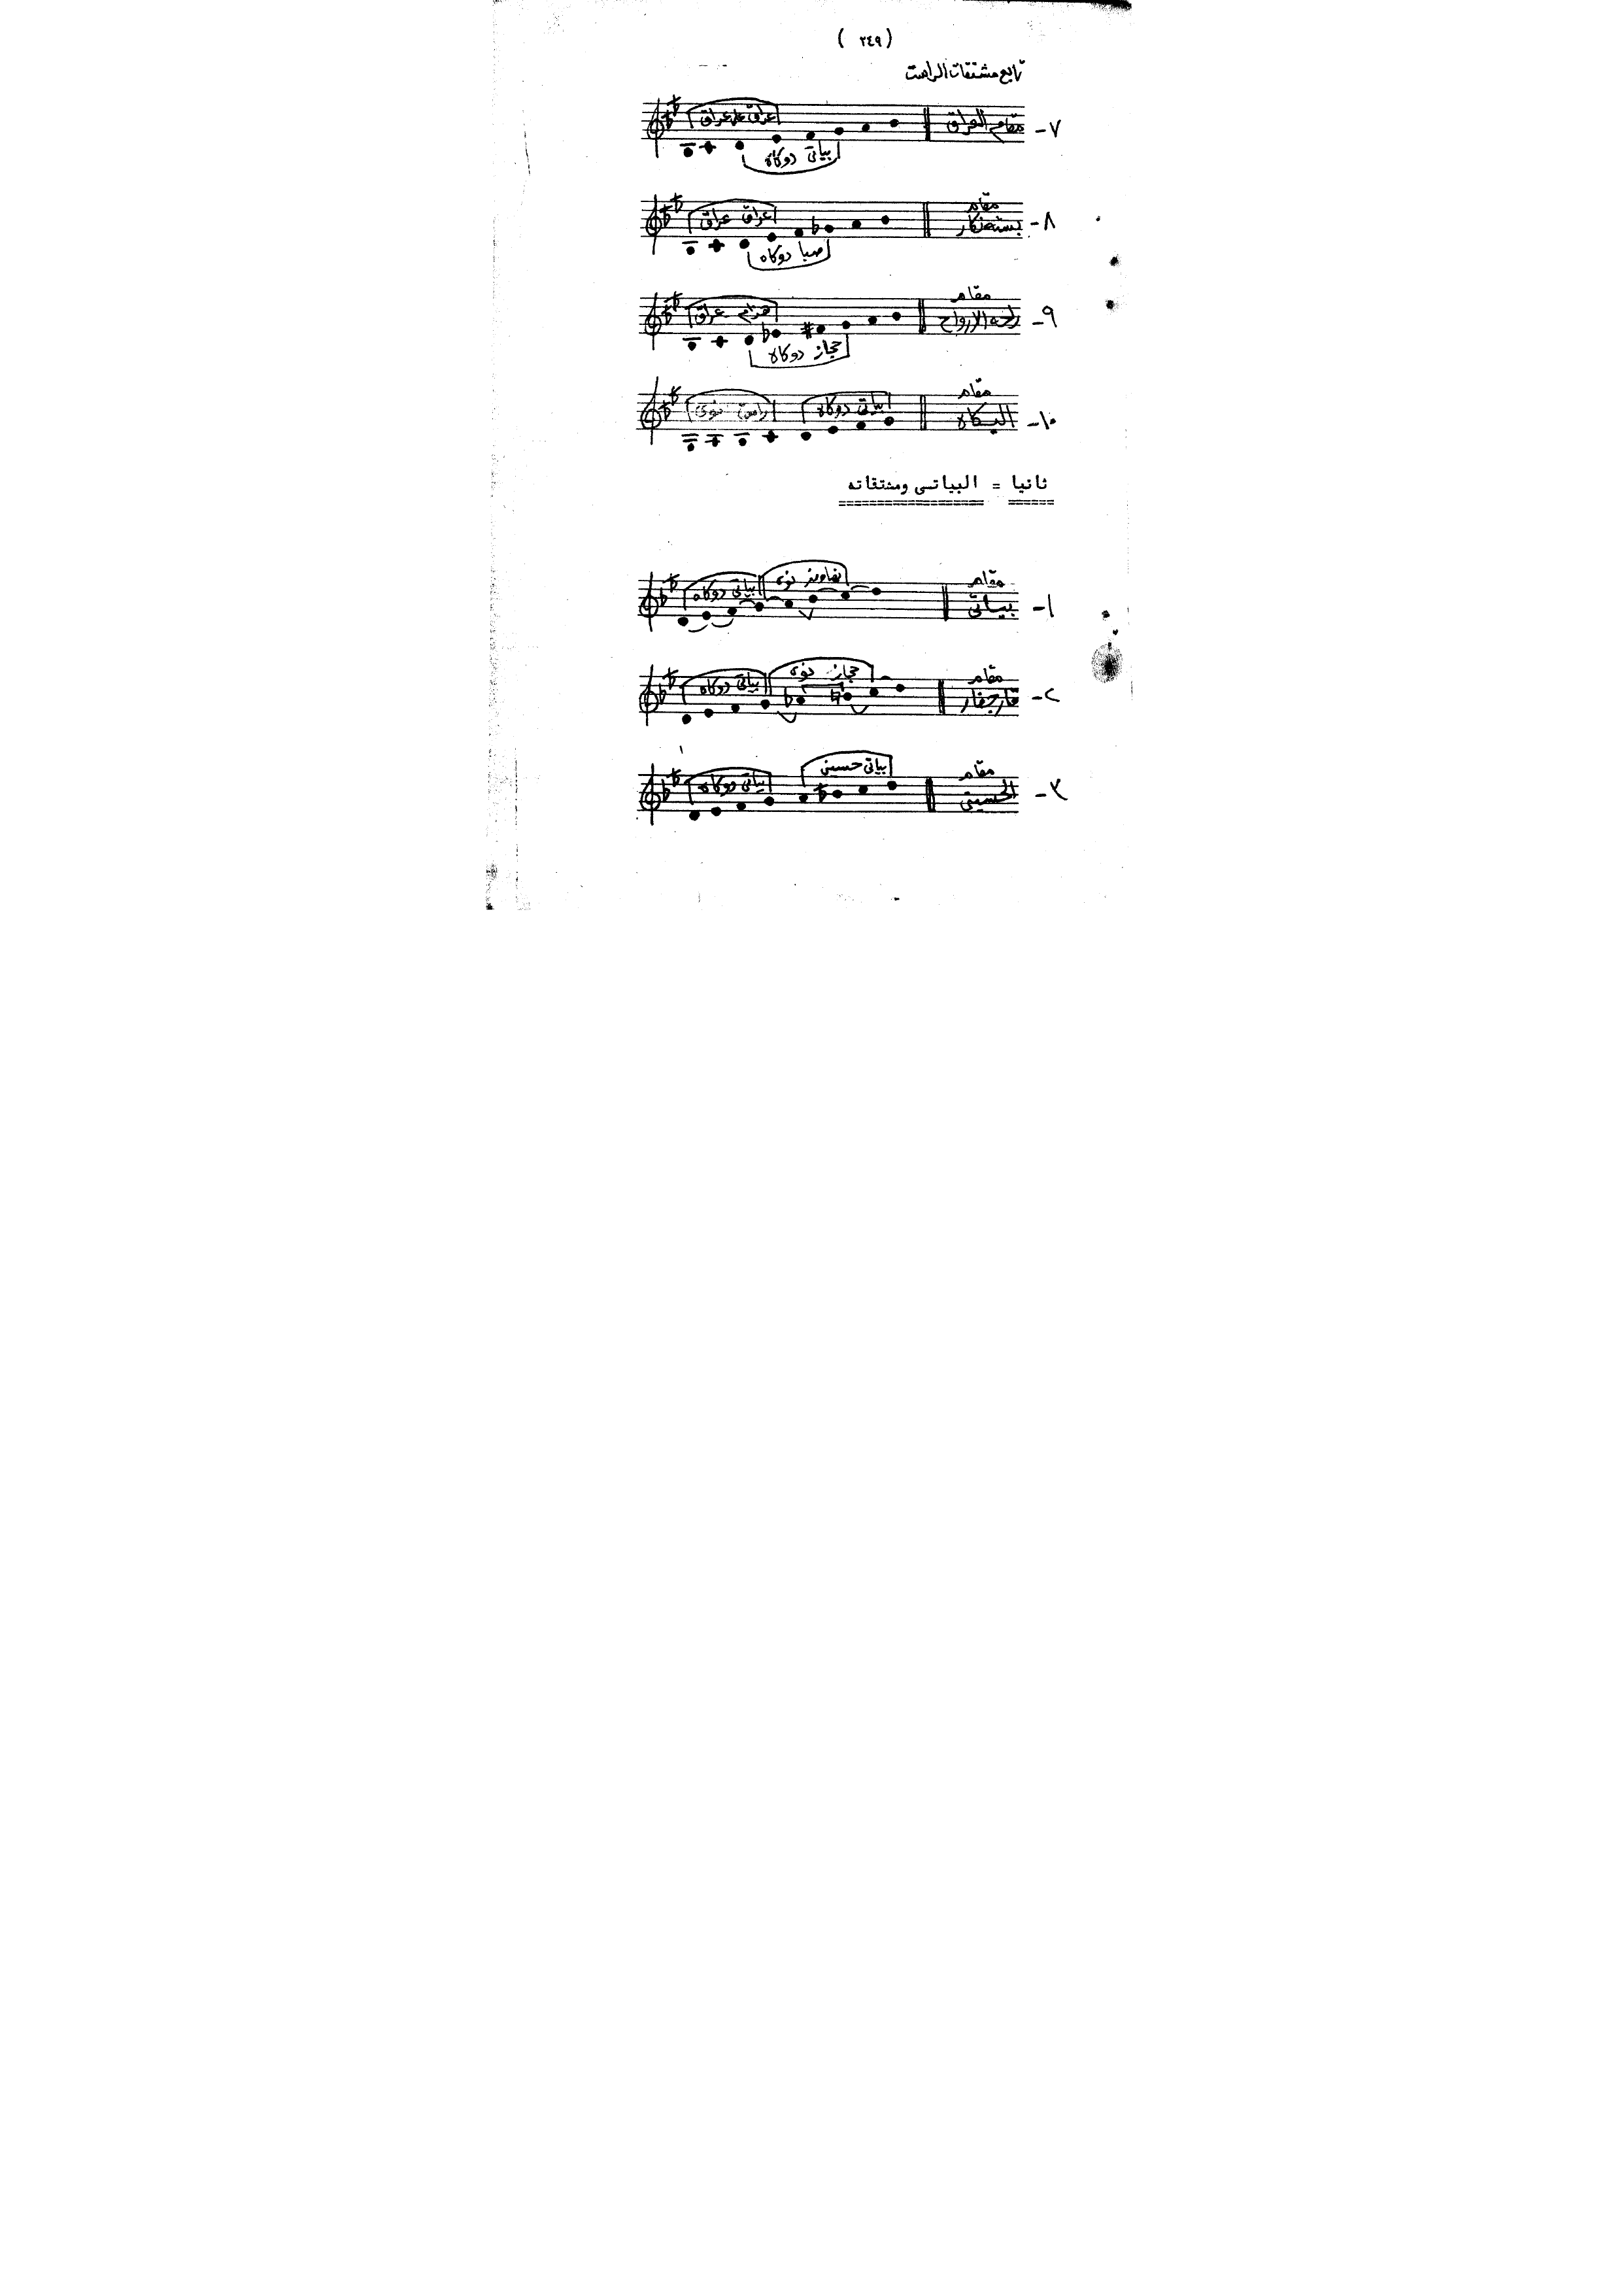 ( ٢٤٩ )
تابع مشتقات الراست
٧- مقام العراق
عراق على عراق
بياتى دوكاه
٨- مقام بستەنكار
عراق عراق
صبا دوكاه
٩- مقام راحة الارواح
هزام عراق
حجاز دوكاه
١٠- مقام اليكاه
راست نوى
بياتى دوكاه
ثانيا = البياتى ومشتقاته
١- مقام بياتى
بياتى دوكاه
نهاوند نوى
٢- مقام قارجغار
بياتى دوكاه
حجاز نوى
٣- مقام الحسينى
بياتى دوكاه
بياتى حسينى